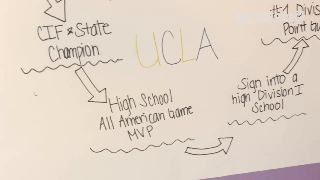 CIF & State
Champion
UCLA
#1 Divisi
Point Gu
High School
All American Game
MVP
Sign into a
high Division I
School